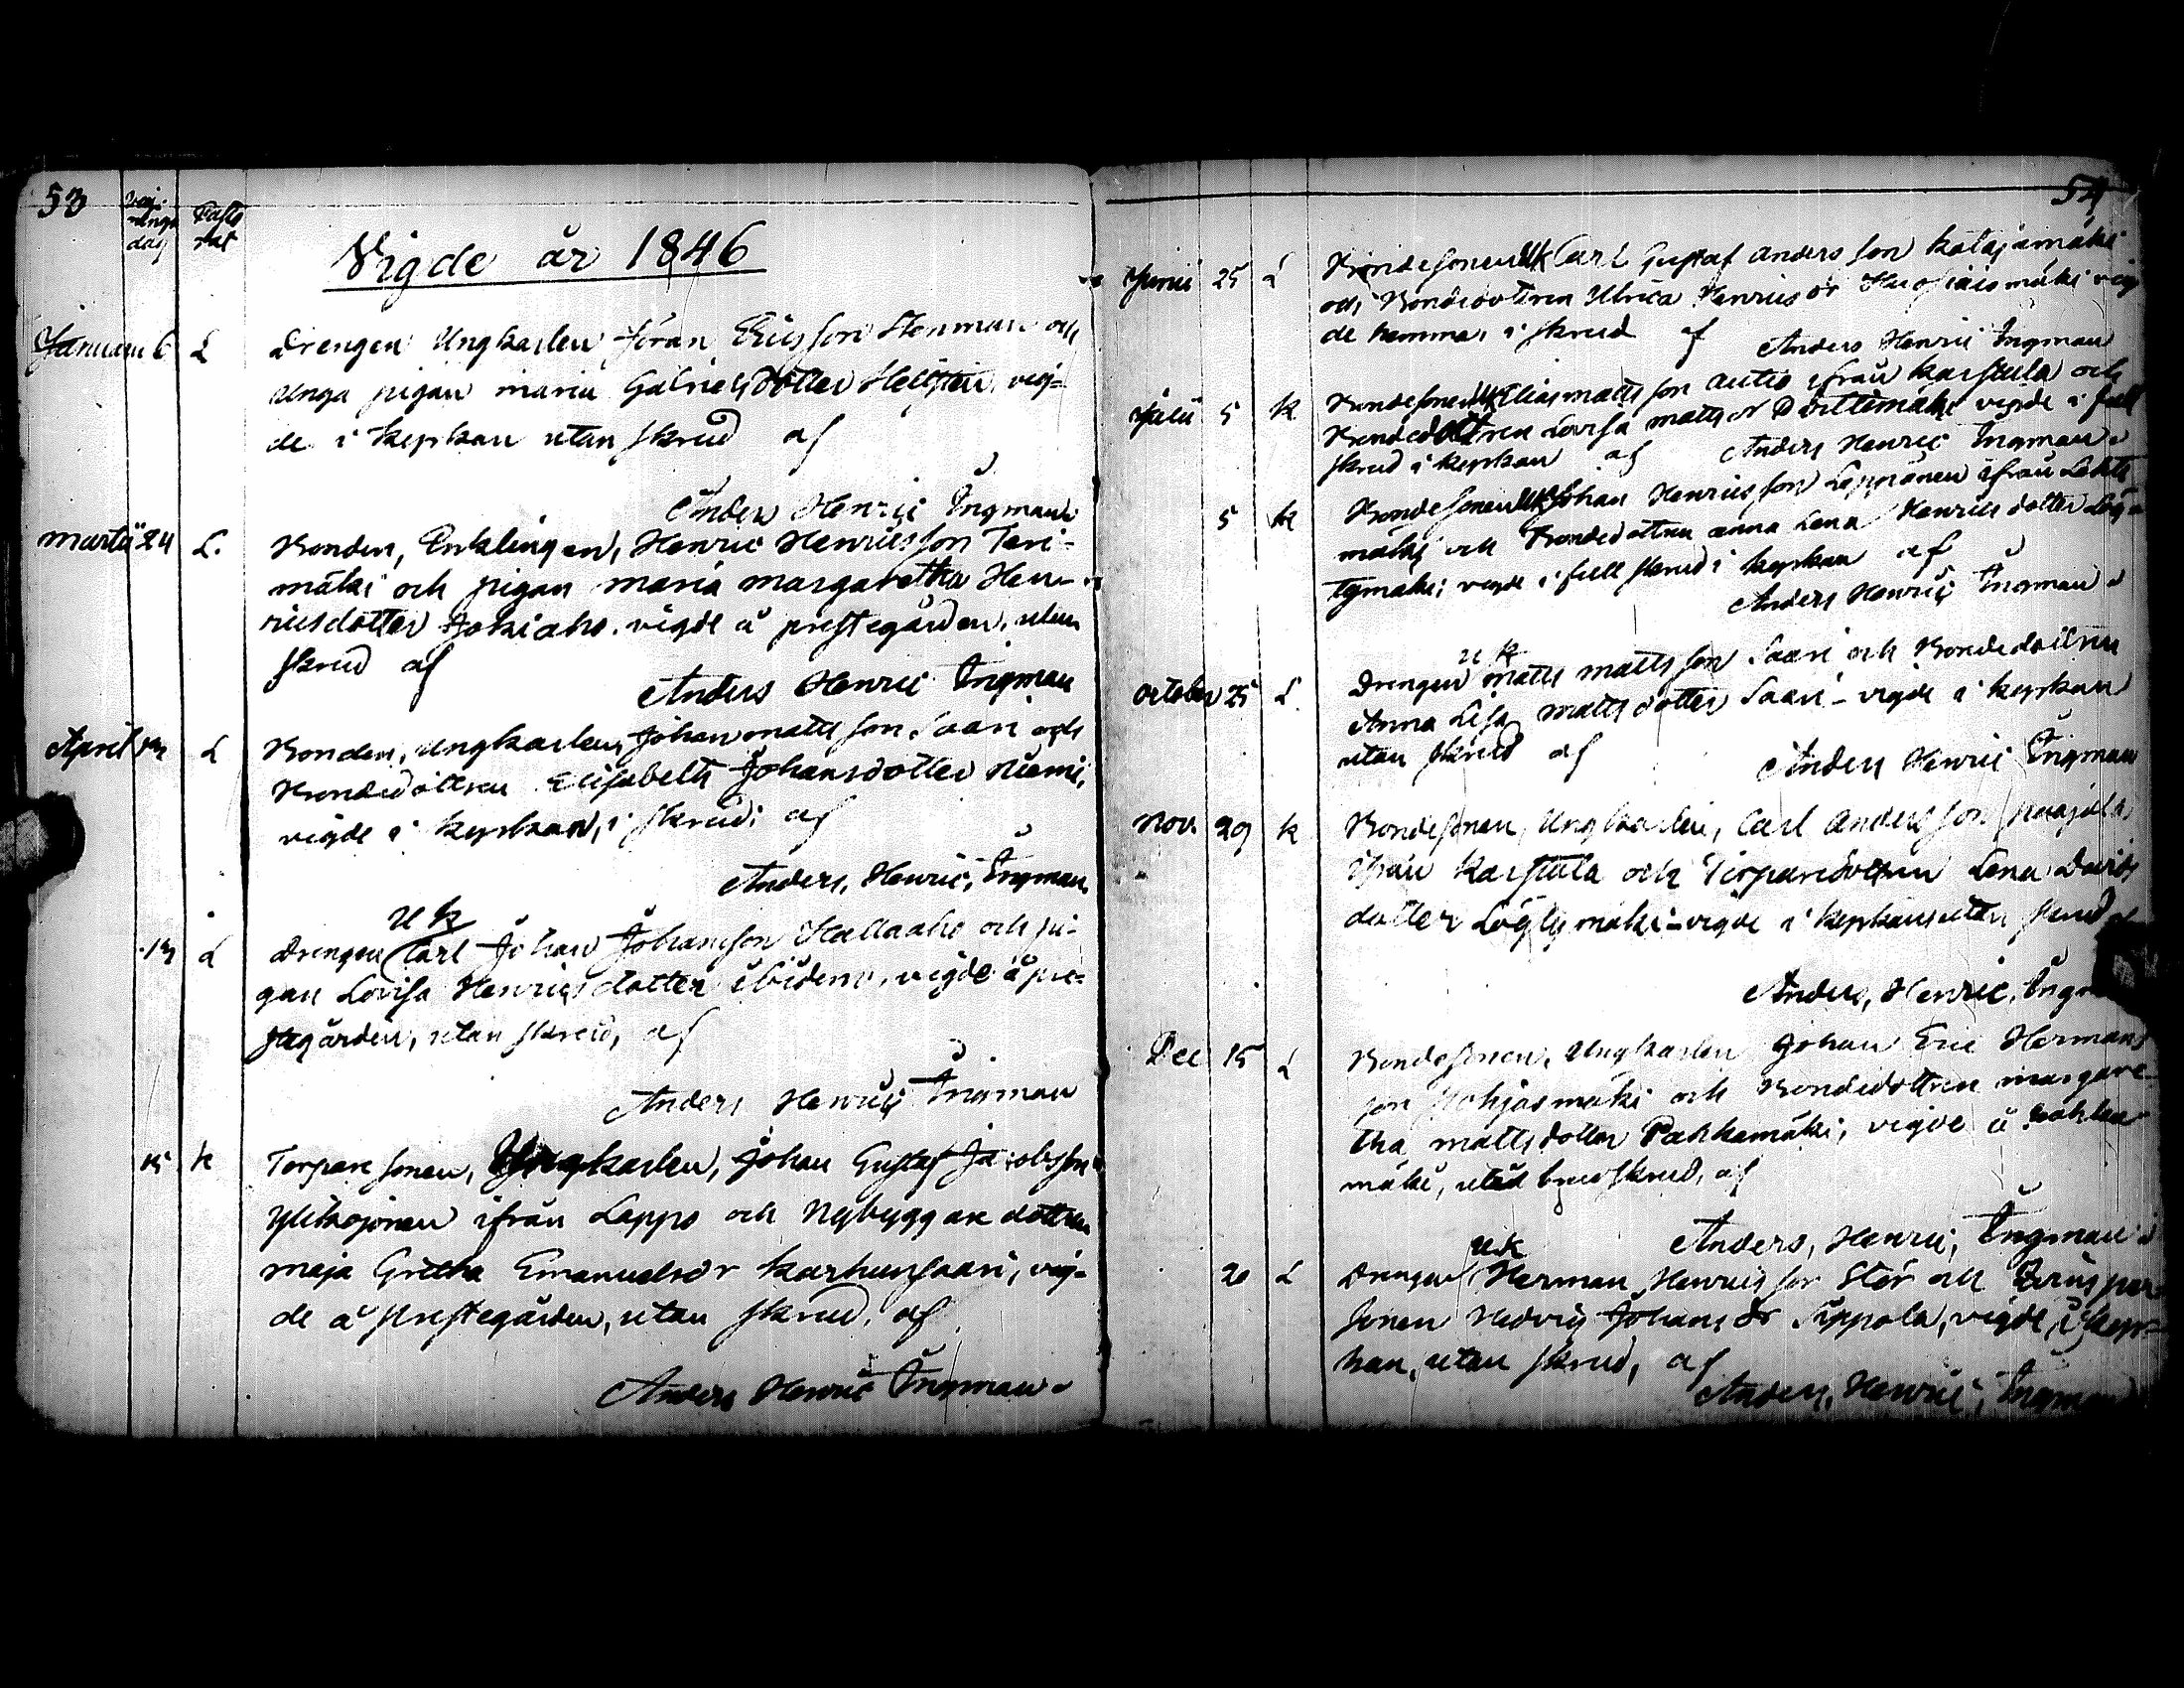 53
dag
Vigde år 1846
Januarii 6 L Drengen Ungkarlen Jöran Ericsson Stenman och
unga pigan Maria Gabrielsdotter Hellsten, vig-
de i kyrkan utan skrud af
Anders Henric Ingman
Martii 24 L. Bonden, Enklingen, Henric Henricsson Teri-
mäki och pigan Maria Margaretha Hen-
ricsdotter Jokiaho. vigde å prestegården, utan
skrud af
Anders Henric Ingman
April L Bonden, Ungkarlen, Johan Mattsson Saari och
Bondedottren Elisabeth Johansdotter Niemi,
vigde i kyrkan, i skrud, af
Anders, Henric, Ingman
U K
L Drengen Carl Johan Johansson Hallaaho och pi-
gan Lovisa Henricsdotter ibidem, vigde å pre-
stegården, utan skrud, af
Anders Henric Ingman
15 K Torparesonen, Ungkarlen, Johan Gustaf Jacobsson
Ylikojonen ifrån Lappo och Nybyggaredottren
Maja Gretha Emanuelsdr Karhunsaari, vig-
de å prestegården, utan skrud, af
Anders Henric Ingman
54
Junii 25 L Bondesonen UK Carl Gustaf Andersson Katajamäki
och Bondedottren Ulrica Henricsdr Huosiaismäki vig
de hemma i skrud af Anders Henric Ingman
Julii 5 K Bondesonen UK Elias Mattsson Autio ifrån Karstula och
Bondedottren Lovisa Mattsdr vigde i full
skrud i kyrkan af Anders Henric Ingman
5 K Bondesonen UK Johan Henricsson Leppänen ifrån
mäki och Bondedottren Anna Lena Henricsdotter Lög-
tymäki vigde i full skrud i kyrkan af
Anders Henric Ingman
U K
October 25 L. Drengen Matts Mattsson Saari och Bondedottren
Anna Lisa Mattsdotter Saari - vigde i kyrkan
utan skrud af
Anders Henric Ingman
Nov. 29 K Bondesonen, Ungkarlen, Carl Andersson
ifrån Karstula och Torparedottren Lena Davids
dotter Lögtymäki - vigde i kyrkan utan skrud af
Anders, Henric, Ingman
Dec 15 L Bondesonen, Ungkarlen Johan Eric Hermans
son Pohjasmäki och Bondedottren Margare-
tha Mattsdotter Pahkamäki, vigde å Pahka
mäki, utan brudskrud, af
Anders, Henric, Ingman
UK
20 L Drengen Herman Henricsson Stör och
sonen Hedvig Johansdr Sippola, vigde i kyr-
kan, utan skrud, af
Anders, Henric, Ingman